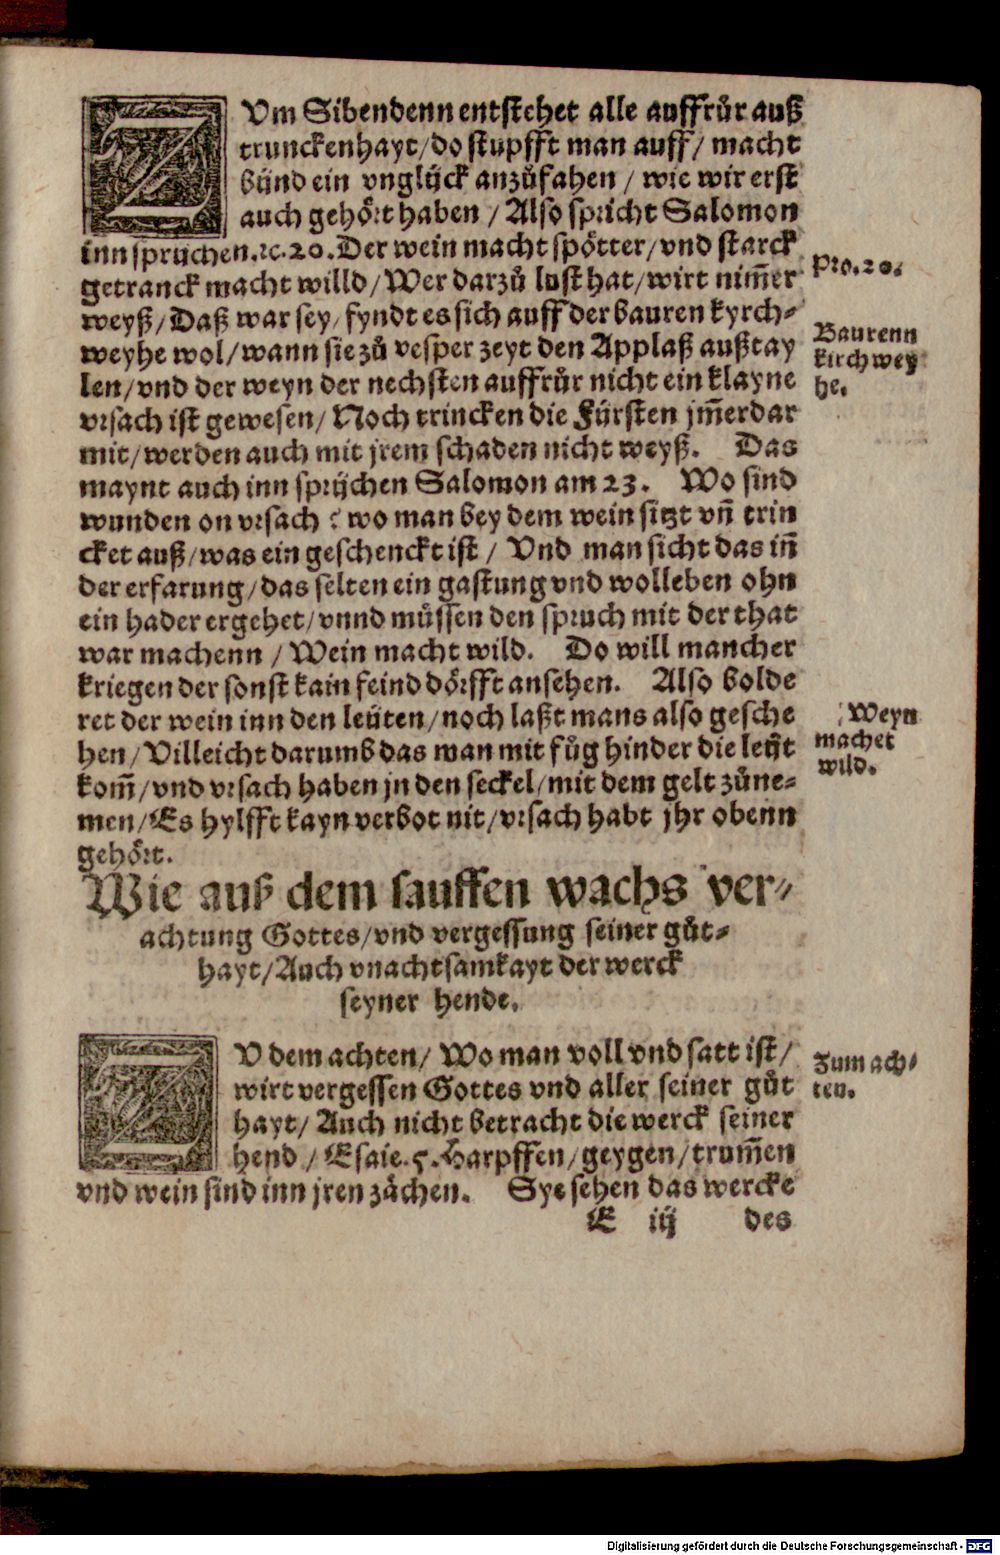 ZVm Sibendenn entstehet alle auffrůr auß
trunckenhayt/do stupfft man auff/ macht
bünd ein vnglück anzůfahen / wie wir erst
auch gehört haben / Also spricht Salomon
inn sprüchen.ꝛc.20.Der wein macht spötter/vnd starck
getranck macht willd/Wer darzů lust hat/wirt nim̃er
weyß/Daß war sey/fyndt es sich auff der bauren kyrch⸗
weyhe wol/wann sie zů vesper zeyt den Applaß außtay
len/vnd der weyn der nechsten auffrůr nicht ein klayne
vrsach ist gewesen/Noch trincken die Fürsten jm̃erdar
mit/werden auch mit jrem schaden nicht weyß. Das
maynt auch inn sprüchen Salomon am 23. Wo sind
wunden on vrsach ? wo man bey dem wein sitzt vñ trin
cket auß/was ein geschenckt ist / Vnd man sicht das iñ
der erfarung/das selten ein gastung vnd wolleben ohn
ein hader ergehet/vnnd müssen den spruch mit der that
war machenn / Wein macht wild. Do will mancher
kriegen der sonst kain feind dörfft ansehen. Also bolde
ret der wein inn den leüten/noch laßt mans also gesche
hen/Villeicht darumb das man mit fůg hinder die leüt
kom̃/vnd vrsach haben jn den seckel/mit dem gelt zůne⸗
men/Es hylfft kayn verbot nit/vrsach habt jhr obenn
gehört.
Pro.20.
Baurenn
kirchwey
he.
Weyn
machet
wild.
Wie auß dem sauffen wachs ver⸗
achtung Gottes/vnd vergessung seiner gůt⸗
hayt/Auch vnachtsamkayt der werck
seyner hende.
ZV dem achten/ Wo man voll vnd satt ist/
wirt vergessen Gottes vnd aller seiner gůt
hayt/ Auch nicht betracht die werck seiner
hend / Esaie.5.Harpffen/geygen/trum̃en
vnd wein sind inn jren zächen. Sye sehen das wercke
Zum ach⸗
ten.
E iij des
Digitalisierung gefördert durch die Deutsche Forschungsgemeinschaft - DFG